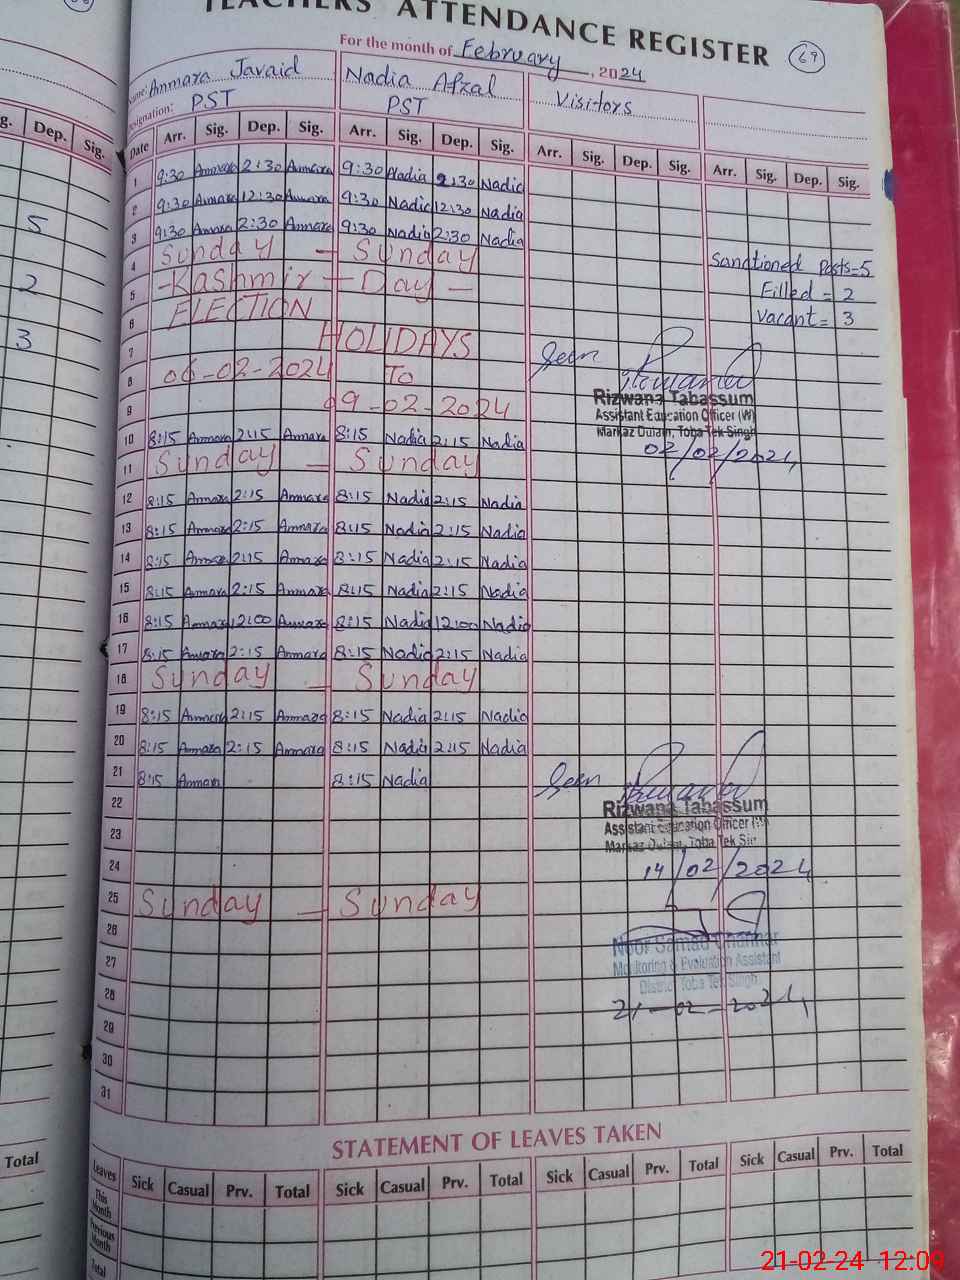 TEACHERS' ATTENDANCE REGISTER 69
For the month of February, 2024
Name: Ammara Javaid Nadia Afzal Visitors
Designation: PST PST
g. Dep. Sig.
Date Arr. Sig. Dep. Sig. Arr. Sig. Dep. Sig. Arr. Sig. Dep. Sig. Arr. Sig. Dep. Sig.
1 9:30 Ammara 2:30 Ammara 9:30 Nadia 2:30 Nadia
2 9:30 Ammara 12:30 Ammara 9:30 Nadia 12:30 Nadia
5
3 9:30 Ammara 2:30 Ammara 9:30 Nadia 2:30 Nadia
4 Sunday - Sunday Sanctioned Posts=5
2
5 -Kashmir - Day - Filled = 2
6 ELECTION Vacant = 3
3
7 HOLIDAYS Seen
8 06-02-2024 To
Rizwana Tabassum
9 09-02-2024 Assistant Education Officer (W)
10 8:15 Ammara 2:15 Ammara 8:15 Nadia 2:15 Nadia Markaz Dulam, Toba Tek Singh
11 Sunday - Sunday 02/02/2024
12 8:15 Ammara 2:15 Ammara 8:15 Nadia 2:15 Nadia
13 8:15 Ammara 2:15 Ammara 8:15 Nadia 2:15 Nadia
14 8:15 Ammara 2:15 Ammara 8:15 Nadia 2:15 Nadia
15 8:15 Ammara 2:15 Ammara 8:15 Nadia 2:15 Nadia
16 8:15 Ammara 12:00 Ammara 8:15 Nadia 12:00 Nadia
17 8:15 Ammara 2:15 Ammara 8:15 Nadia 2:15 Nadia
18 Sunday - Sunday
19 8:15 Ammara 2:15 Ammara 8:15 Nadia 2:15 Nadia
20 8:15 Ammara 2:15 Ammara 8:15 Nadia 2:15 Nadia
21 8:15 Ammara 8:15 Nadia Seen
22 Rizwana Tabassum
23 Assistant Education Officer (W)
Markaz Dulam, Toba Tek Sin
24 14/02/2024
25 Sunday - Sunday
26 Noor Samad Channar
27 Monitoring & Evaluation Assistant
District Toba Tek Singh
28 21-02-2024
29
30
31
STATEMENT OF LEAVES TAKEN
Total Leaves Sick Casual Prv. Total Sick Casual Prv. Total Sick Casual Prv. Total Sick Casual Prv. Total
This Month
Previous Month
Total
21-02-24 12:09